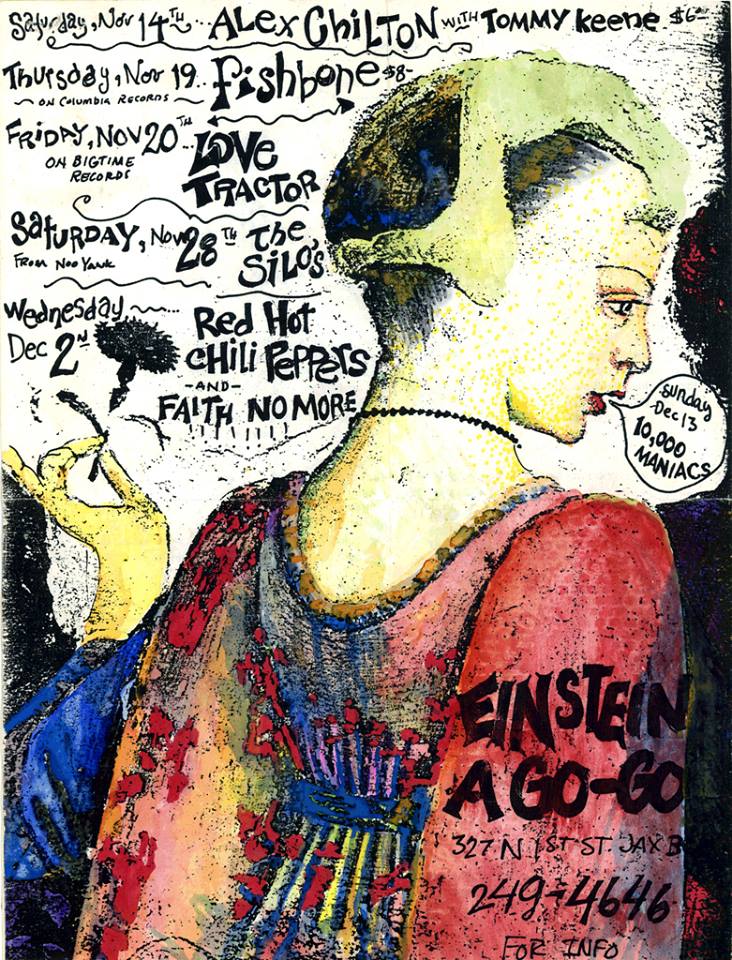 Saturday, Nov 14TH... ALEX CHILTON WITH TOMMY Keene $6-
Thursday, Nov 19.. Fishbone $8-
ON COLUMBIA RECORDS
FRIDAY, NOV 20TH... LOVE TRACTOR
ON BIGTIME
RECORDS
SATURDAY, Nov 28TH The SILOS
FROM NOO YAWK
Wednesday
Dec 2ND
Red Hot
CHILI PEPPERS
-AND-
FAITH NO MORE
Sunday
Dec 13
10,000
MANIACS
EINSTEIN
A GO-GO
327 N 1ST ST. JAX B
249-4646
FOR INFO